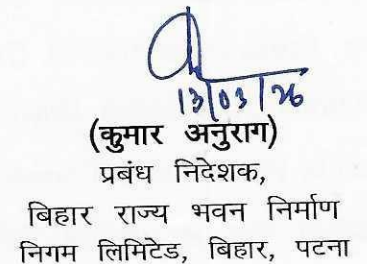 13/03/26
(कुमार अनुराग)
प्रबंध निदेशक,
बिहार राज्य भवन निर्माण
निगम लिमिटेड, बिहार, पटना